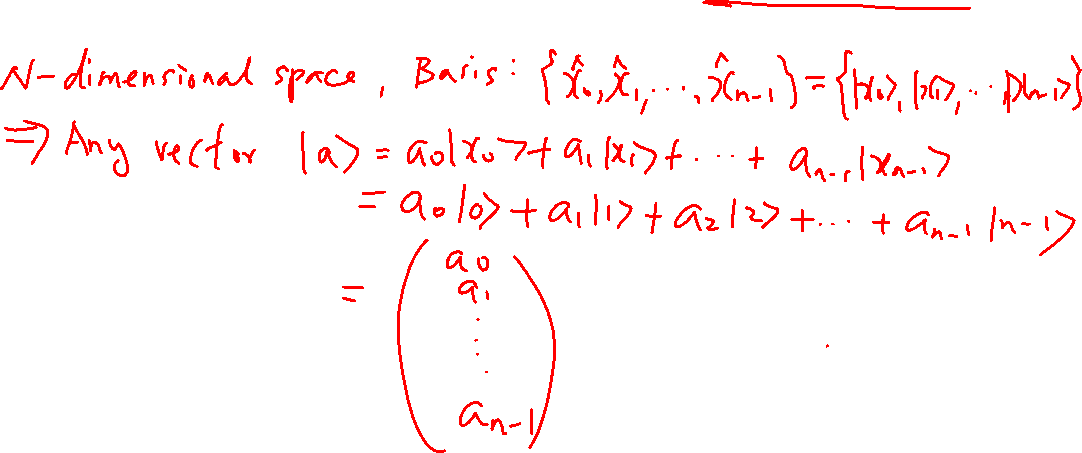 N-dimensional space, Basis: {x̂₀, x̂₁, ..., x̂ₙ₋₁} = {|x₀>, |x₁>, ... |xₙ₋₁>}
⇒ Any vector |a> = a₀|x₀> + a₁|x₁> + ... + aₙ₋₁|xₙ₋₁>
= a₀|0> + a₁|1> + a₂|2> + ... + aₙ₋₁|n-1>
= ( a₀
a₁
⋮
aₙ₋₁ )